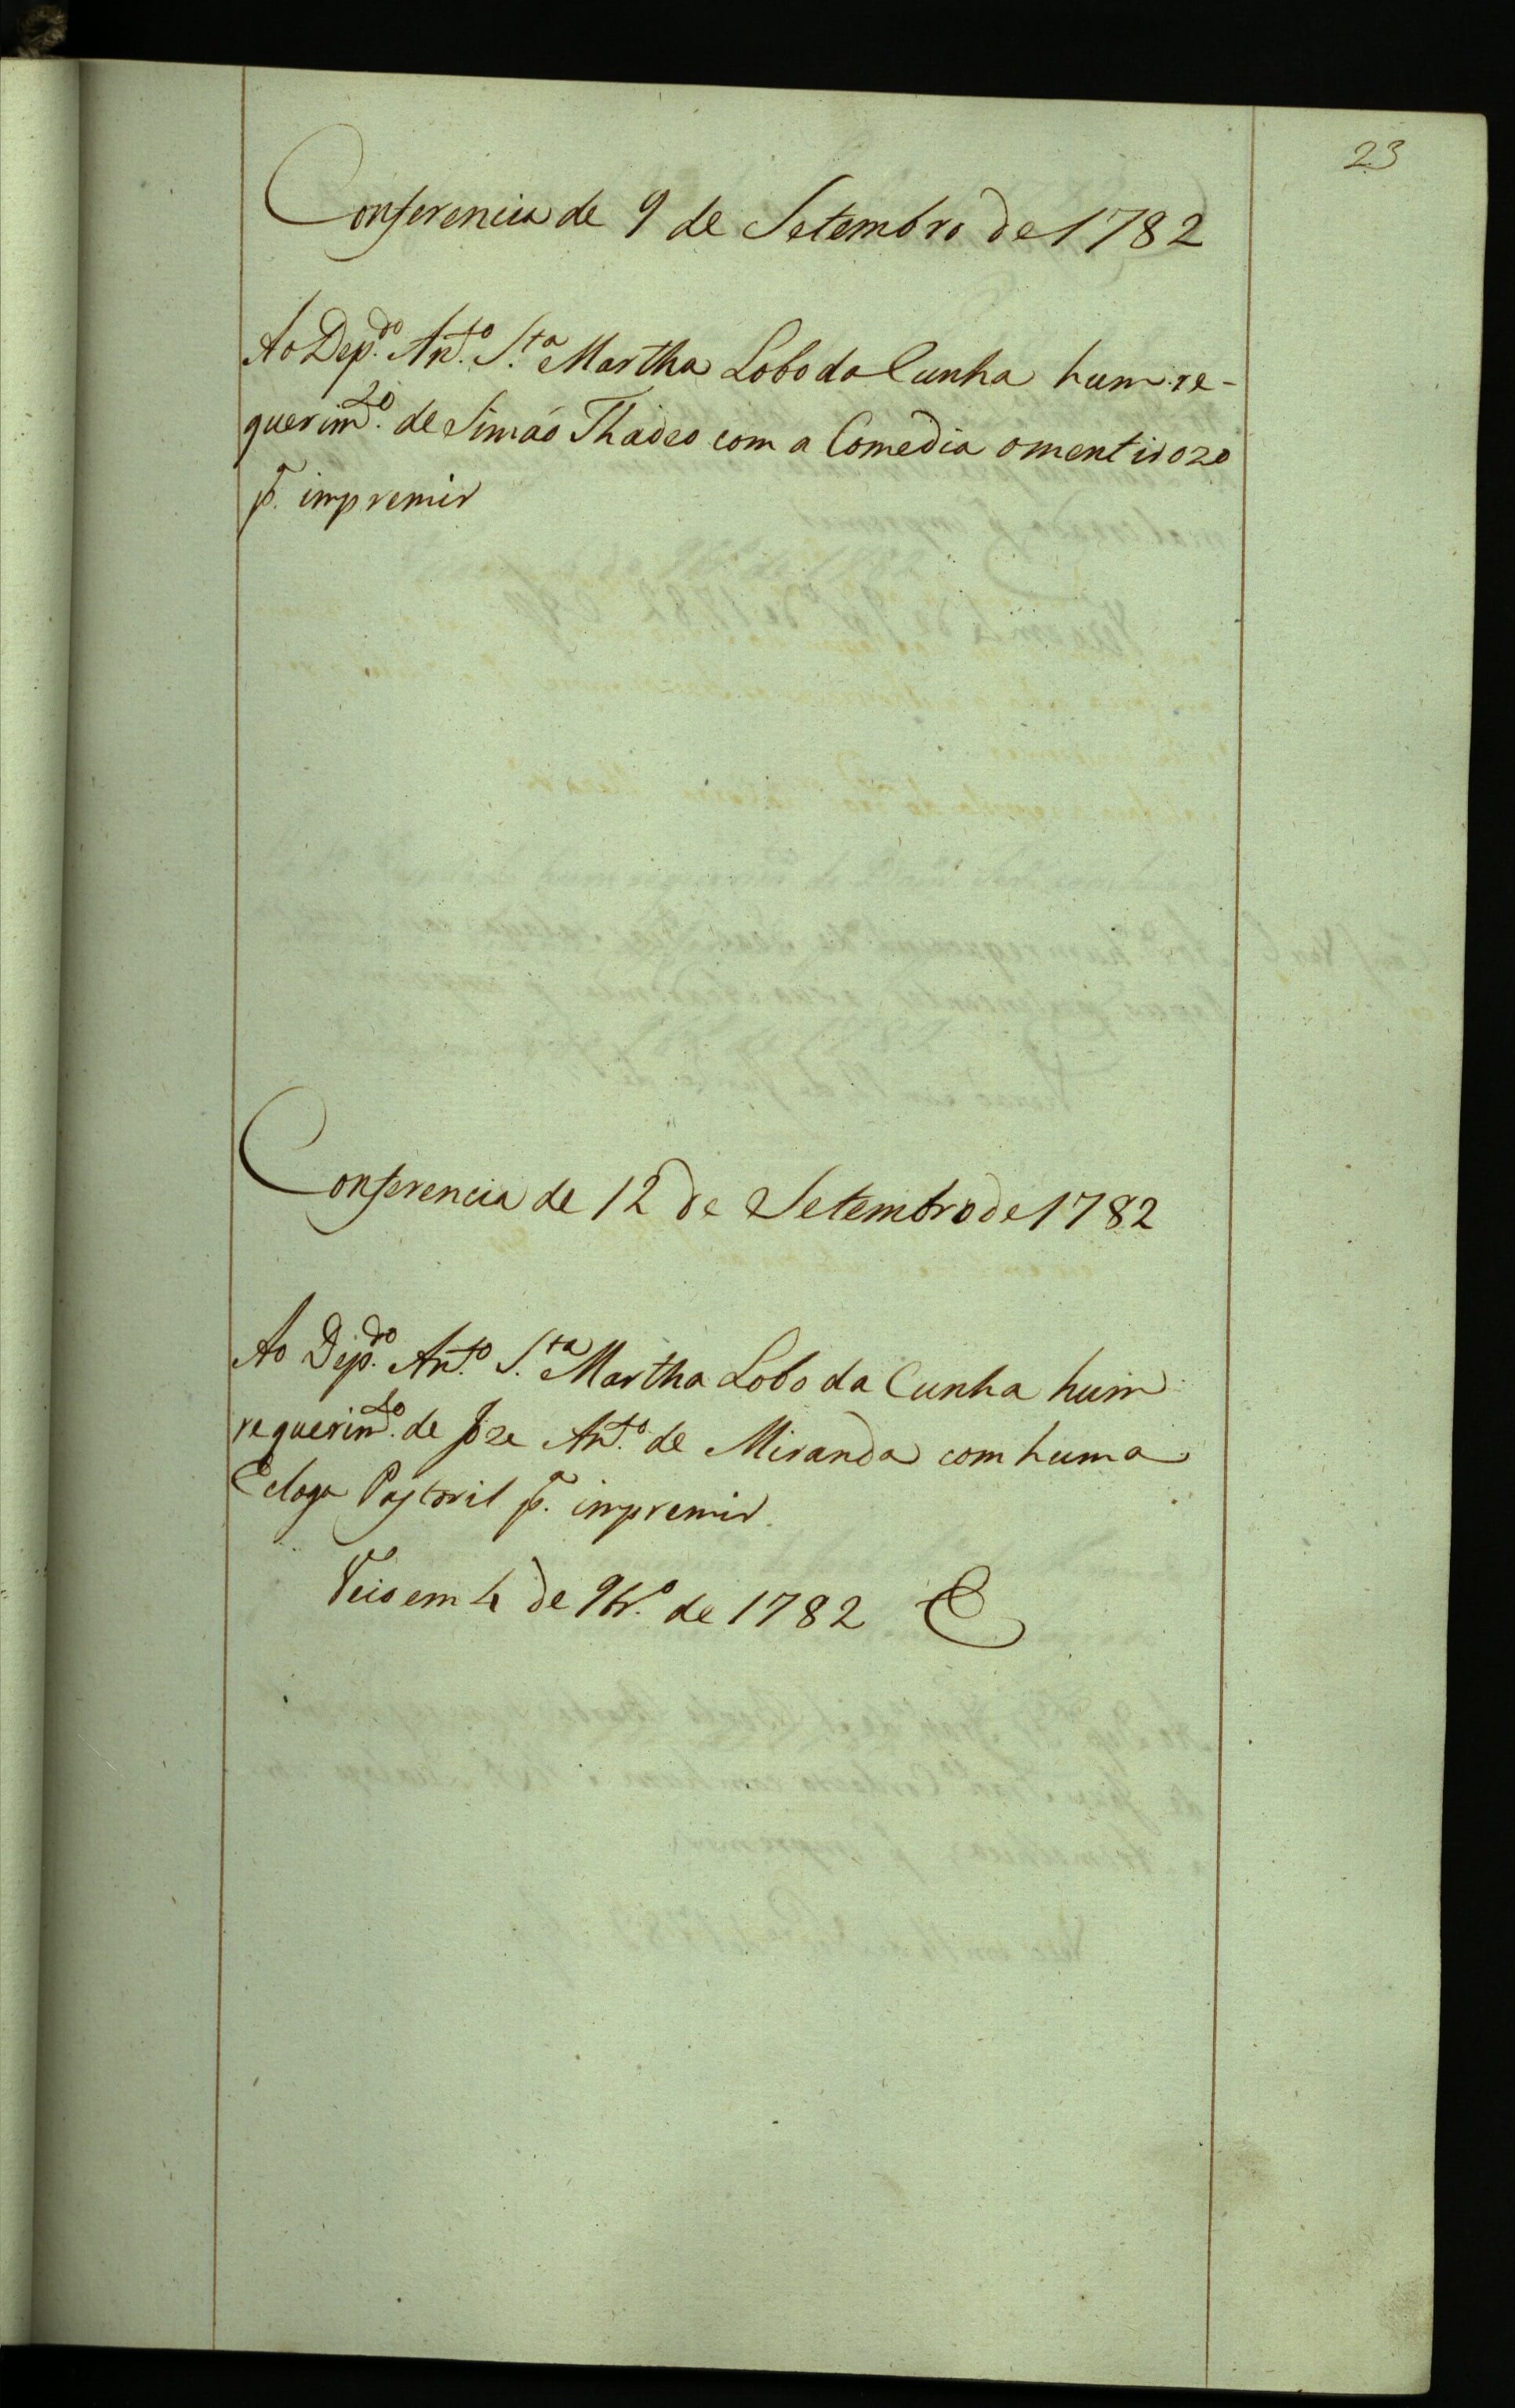 23
Conferencia de 9 de Setembro de 1782
Ao Dep.do Ant.o S.ta Martha Lobo da Cunha hum re-
querim.to de Simaõ Thadeo com a Comedia o mentirozo
p.a impremir
Conferencia de 12 de Setembro de 1782
Ao Dep.do Ant.o S.ta Martha Lobo da Cunha hum
requerim.to de Joze Ant.o de Miranda com huma
Ecloga Pastoril p.a impremir.
Veio em 4 de 9br.o de 1782